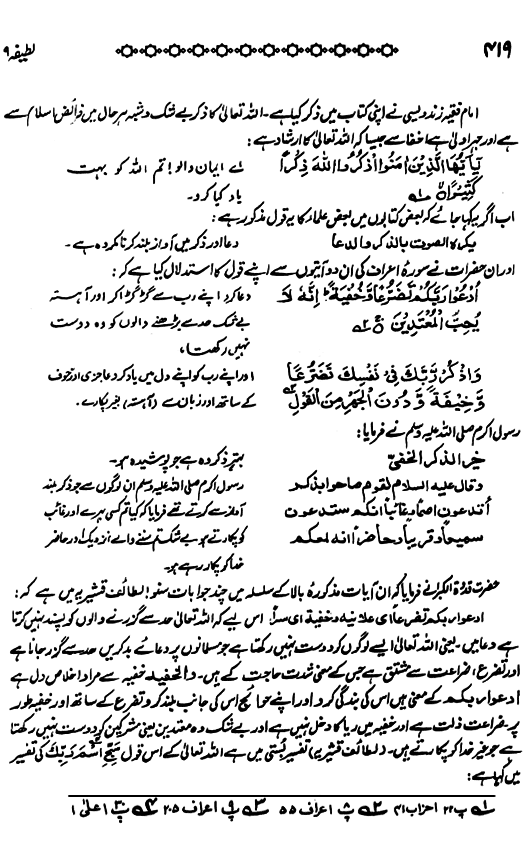 ۴۱۹ لطیفہ ۹
امام فقیہ زندویسی نے اپنی کتاب میں ذکر کیا ہے۔ اللہ تعالیٰ کا ذکر بے شک و شبہ ہر حال میں فرائض اسلام سے
ہے اور جہر اولیٰ ہے اخفا سے جیسا کہ اللہ تعالیٰ کا ارشاد ہے :
یٰۤاَیُّهَا الَّذِیْنَ اٰمَنُوا اذْكُرُوا اللّٰهَ ذِكْرًا اے ایمان والو! تم اللہ کو بہت
كَثِیْرًا ۱ یاد کیا کرو۔
اب اگر یہ کہا جائے کہ بعض کتابوں میں بعض علماء کا یہ قول مذکور ہے :
یکرہ الصوت بالذکر والدعا دعا اور ذکر میں آواز بلند کرنا مکروہ ہے۔
اور ان حضرات نے سورۂ اعراف کی ان دو آیتوں سے اپنے قول کا استدلال کیا ہے کہ :
اُدْعُوْا رَبَّكُمْ تَضَرُّعًا وَّخُفْیَةً اِنَّهٗ لَا دعا کرو اپنے رب سے گڑگڑا کر اور آہستہ
یُحِبُّ الْمُعْتَدِیْنَ ۲ بے شک حد سے بڑھنے والوں کو وہ دوست
نہیں رکھتا،
وَاذْكُرْ رَّبَّكَ فِیْ نَفْسِكَ تَضَرُّعًا اور اپنے رب کو اپنے دل میں یاد کرو عاجزی اور خوف
وَّخِیْفَةً وَّدُوْنَ الْجَهْرِ مِنَ الْقَوْلِ ۳ کے ساتھ اور زبان سے (آہستہ) بغیر پکارے۔
رسول اکرم صلی اللہ علیہ وسلم نے فرمایا :
خیر الذکر الخفیّ بہتر ذکر وہ ہے جو پوشیدہ ہو۔
وقال علیہ السلام لقوم صاحوا بذکر رسول اکرم صلی اللہ علیہ وسلم ان لوگوں سے جو ذکر بلند
أتدعون اصمًا وغائبًا انکم ستدعون آواز سے کرتے تھے فرمایا کہ کیا تم کسی بہرے اور غائب
سمیعًا و قریبًا و حاضرًا انہ لمعکم کو پکارتے ہو بے شک تم سننے والے نزدیک اور حاضر
خدا کو پکار رہے ہو۔
حضرت قدوۃ الکبریٰ نے فرمایا کہ ان آیات مذکورہ بالا کے سلسلہ میں چند جوابات سنو! لطائف قشیریہ میں ہے کہ :
ادعوا ربکم تضرعًا ای علانیۃ وخفیۃ ای سرًا۔ اس لیے کہ اللہ تعالیٰ حد سے گزرنے والوں کو پسند نہیں کرتا
ہے دعا میں۔ یعنی اللہ تعالیٰ ایسے لوگوں کو دوست نہیں رکھتا ہے جو مسلمانوں پر دعائے بد کریں حد سے گزر جانا ہے
اور تضرع، ضراعت سے مشتق ہے جس کے معنی شدت حاجت کے ہیں۔ والخفیۃ خفیہ سے مراد اخلاص دل ہے
ادعوا ربکم کے معنی ہیں اس کی بندگی کرو اور اپنے حوائج اس کی جانب بلند کرو تضرع کے ساتھ اور خفیہ طور
پر ضراعت ذلت ہے اور خفیہ میں ریا کا دخل نہیں ہے اور بے شک وہ معتدین یعنی مشرکین کو دوست نہیں رکھتا
ہے جو غیر خدا کو پکارتے ہیں۔ (لطائف قشیری) تفسیر بُستی میں ہے اللہ تعالیٰ کے اس قول سَبِّحِ اسْمَ رَبِّكَ کی تفسیر
میں کہا ہے :
۱ پ ۲۲ احزاب ۴۱ ۲ پ ۸ اعراف ۵۵ ۳ پ ۹ اعراف ۲۰۵ ۴ پ ۳۰ اعلیٰ ۱